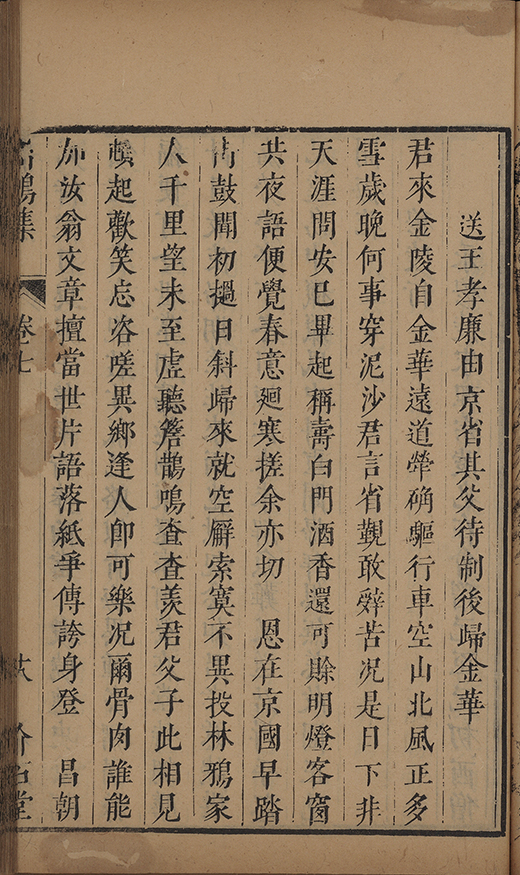 送王孝廉由京省其父待制後歸金華
君來金陵自金華遠道犖确驅行車空山北風正多
雪歲晚何事穿泥沙君言省覲敢辭苦况是日下非
天涯問安已畢起稱壽白門酒香還可賒明燈客窗
共夜語便覺春意廻寒槎余亦切　恩在京國早踏
街鼓聞初撾日斜歸來就空廨索寞不異投林鴉家
人千里望未至虛聽簷鵲鳴查查羨君父子此相見
頓起歡笑忘咨嗟異鄉逢人卽可樂况爾骨肉誰能
加汝翁文章擅當世片語落紙爭傳誇身登　昌朝
鳴集
卷七